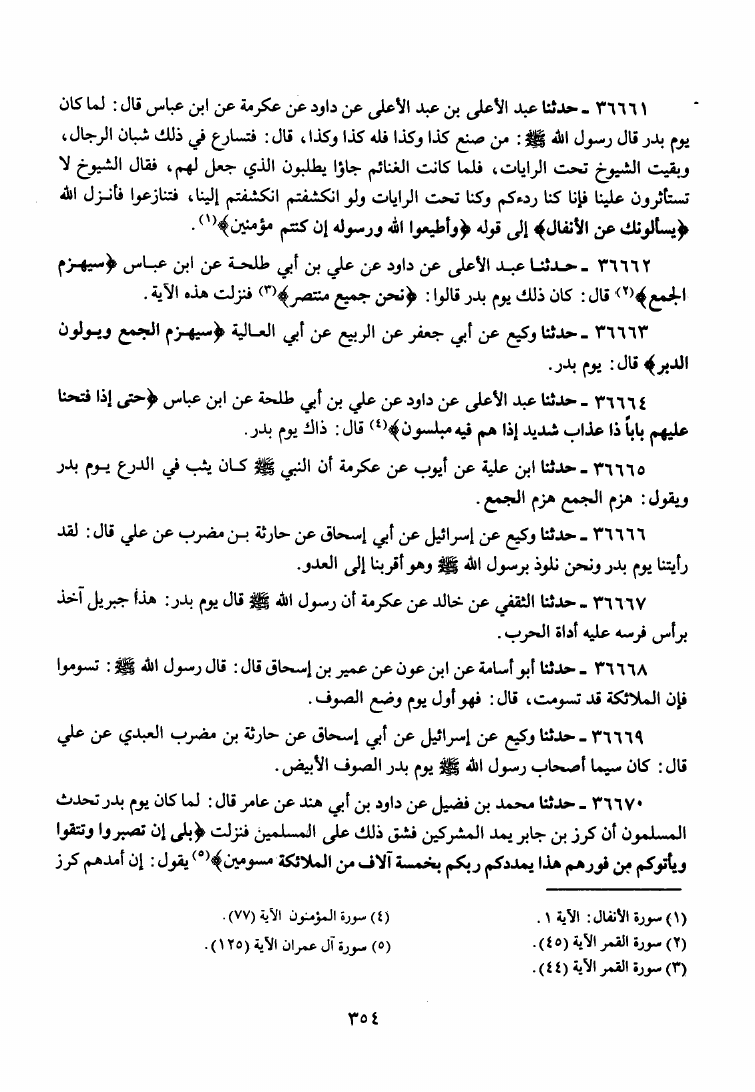 ٣٦٦٦١ ـ حدثنا عبد الأعلى بن عبد الأعلى عن داود عن عكرمة عن ابن عباس قال: لما كان
يوم بدر قال رسول الله ﷺ: من صنع كذا وكذا فله كذا وكذا، قال: فتسارع في ذلك شبان الرجال،
وبقيت الشيوخ تحت الرايات، فلما كانت الغنائم جاؤا يطلبون الذي جعل لهم، فقال الشيوخ لا
تستأثرون علينا فإنا كنا ردءكم وكنا تحت الرايات ولو انكشفتم انكشفتم إلينا، فتنازعوا فأنـزل الله
﴿يسألونك عن الأنفال﴾ إلى قوله ﴿وأطيعوا الله ورسوله إن كنتم مؤمنين﴾(١).
٣٦٦٦٢ ـ حدثنا عبد الأعلى عن داود عن علي بن أبي طلحة عن ابن عباس ﴿سيهزم
الجمع﴾(٢) قال: كان ذلك يوم بدر قالوا: ﴿نحن جميع منتصر﴾(٣) فنزلت هذه الآية.
٣٦٦٦٣ ـ حدثنا وكيع عن أبي جعفر عن الربيع عن أبي العالية ﴿سيهزم الجمع ويولون
الدبر﴾ قال: يوم بدر.
٣٦٦٦٤ ـ حدثنا عبد الأعلى عن داود عن علي بن أبي طلحة عن ابن عباس ﴿حتى إذا فتحنا
عليهم باباً ذا عذاب شديد إذا هم فيه مبلسون﴾(٤) قال: ذاك يوم بدر.
٣٦٦٦٥ ـ حدثنا ابن علية عن أيوب عن عكرمة أن النبي ﷺ كان يثب في الدرع يوم بدر
ويقول: هزم الجمع هزم الجمع.
٣٦٦٦٦ ـ حدثنا وكيع عن إسرائيل عن أبي إسحاق عن حارثة بن مضرب عن علي قال: لقد
رأيتنا يوم بدر ونحن نلوذ برسول الله ﷺ وهو أقربنا إلى العدو.
٣٦٦٦٧ ـ حدثنا الثقفي عن خالد عن عكرمة أن رسول الله ﷺ قال يوم بدر: هذا جبريل آخذ
برأس فرسه عليه أداة الحرب.
٣٦٦٦٨ ـ حدثنا أبو أسامة عن ابن عون عن عمير بن إسحاق قال: قال رسول الله ﷺ: تسوموا
فإن الملائكة قد تسومت، قال: فهو أول يوم وضع الصوف.
٣٦٦٦٩ ـ حدثنا وكيع عن إسرائيل عن أبي إسحاق عن حارثة بن مضرب العبدي عن علي
قال: كان سيما أصحاب رسول الله ﷺ يوم بدر الصوف الأبيض.
٣٦٦٧٠ ـ حدثنا محمد بن فضيل عن داود بن أبي هند عن عامر قال: لما كان يوم بدر تحدث
المسلمون أن كرز بن جابر يمد المشركين فشق ذلك على المسلمين فنزلت ﴿بلى إن تصبروا وتتقوا
ويأتوكم من فورهم هذا يمددكم ربكم بخمسة آلاف من الملائكة مسومين﴾(٥) يقول: إن أمدهم كرز
(١) سورة الأنفال: الآية ١.
(٢) سورة القمر الآية (٤٥).
(٣) سورة القمر الآية (٤٤).
(٤) سورة المؤمنون الآية (٧٧).
(٥) سورة آل عمران الآية (١٢٥).
٣٥٤